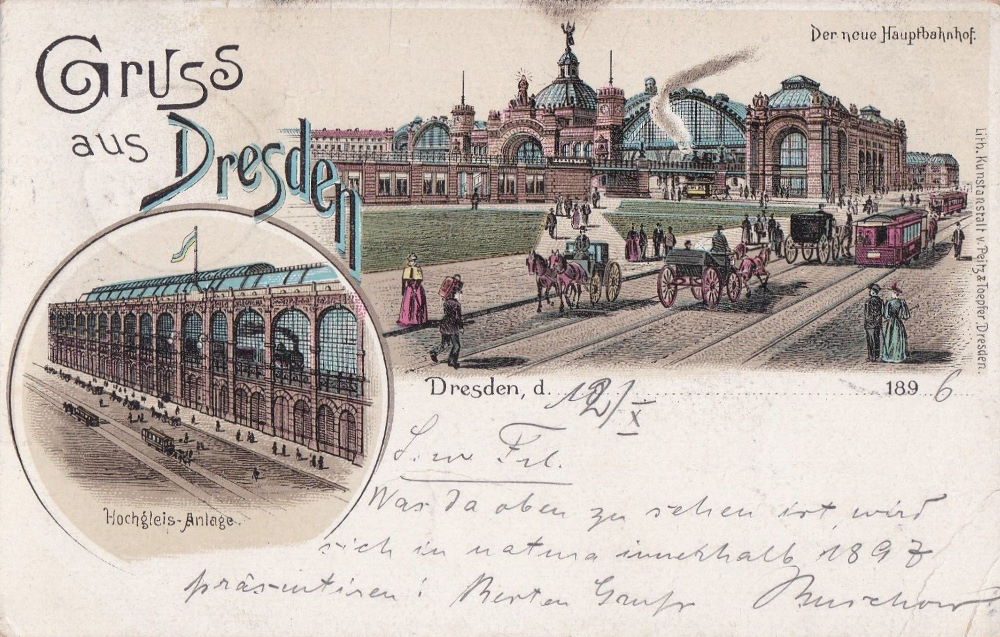 Gruss
aus Dresden
Der neue Hauptbahnhof.
Lith. Kunstanstalt v. Peitz & Toepfer Dresden.
Hochgleis-Anlage.
Dresden, d. 12/X 1896
Frl.
Was da oben zu sehen ist, wird
sich in natura innerhalb 1897
präsentiren! Besten Gruß